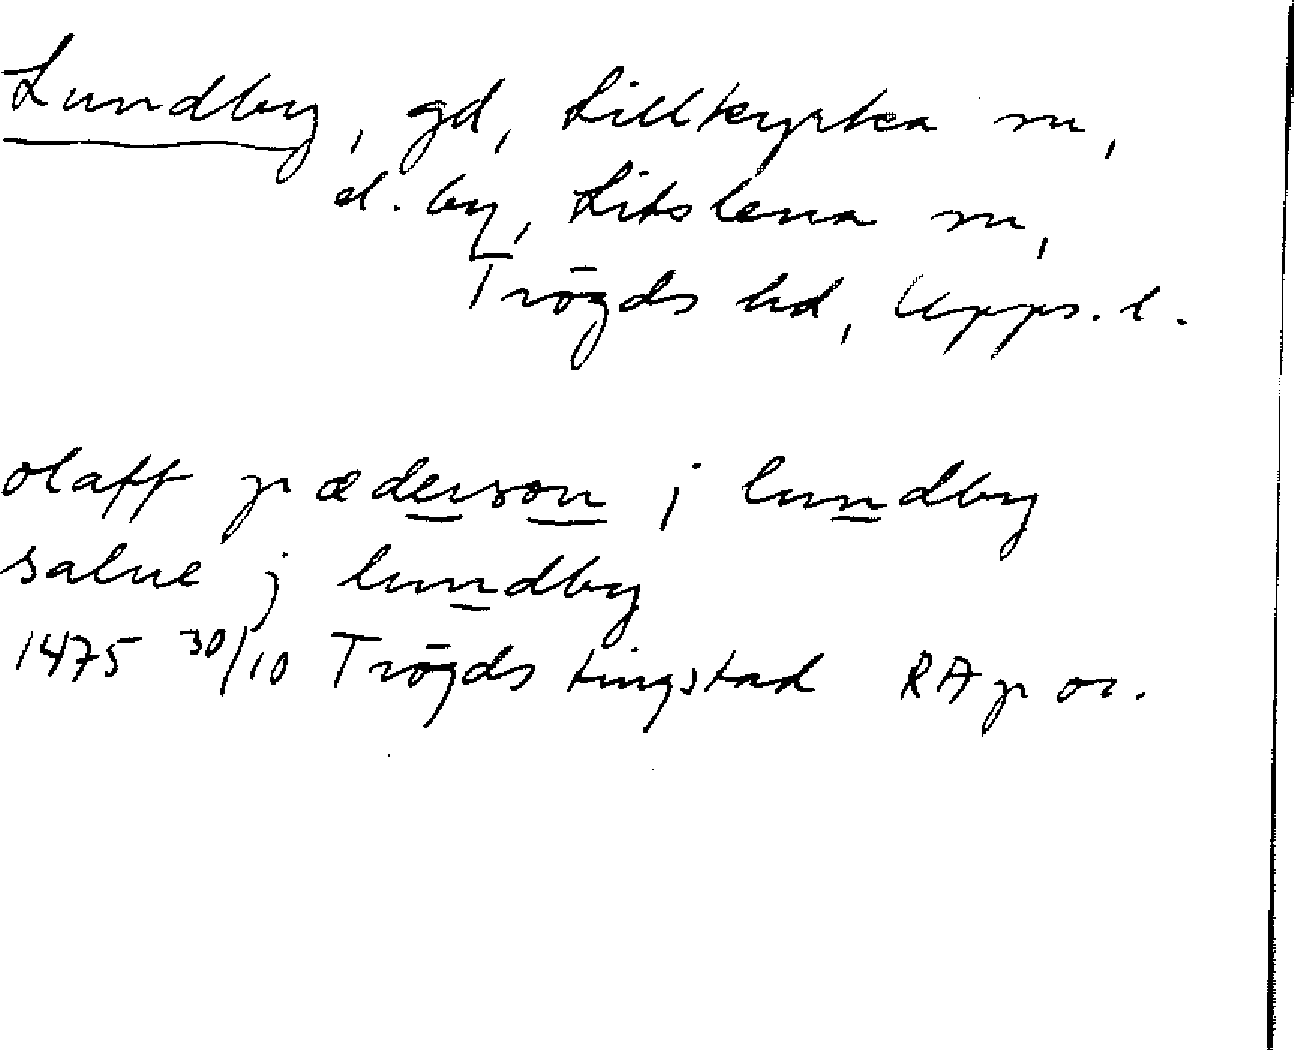 Lundby, gd, Lillkyrka sn,
el. by, Litslena sn,
Trögds hd, Upps. l.
olaff pæderson j lundby
salue j lundby
1475 30/10 Trögds tingstad RAp or.